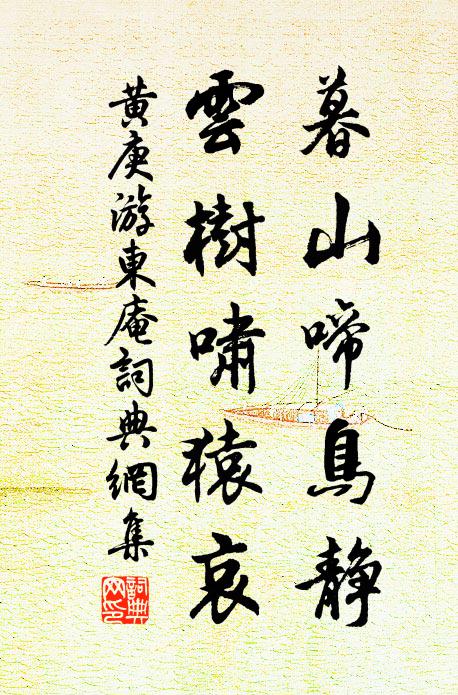 暮山啼鳥静
雲樹嘯猿哀
黄庚游東庵詞典網集
詞典網印